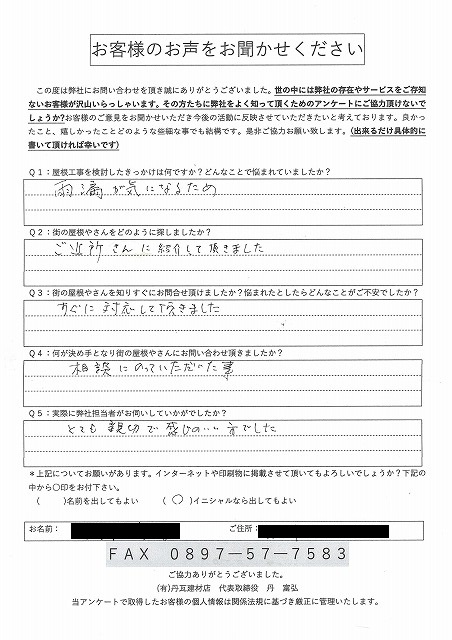 お客様のお声をお聞かせください
この度は弊社にお問い合わせを頂き誠にありがとうございました。世の中には弊社の存在やサービスをご存知
ないお客様が沢山いらっしゃいます。その方たちに弊社をよく知って頂くためのアンケートにご協力頂けないで
しょうか?お客様のご意見をお聞かせいただき今後の活動に反映させていただきたいと考えております。良かっ
たこと、嬉しかったことどのような些細な事でも結構です。是非ご協力お願い致します。(出来るだけ具体的に
書いて頂ければ幸いです)
Q1:屋根工事を検討したきっかけは何ですか?どんなことで悩まれていましたか?
雨漏が気になるため
Q2:街の屋根やさんをどのように探しましたか?
ご近所さんに紹介して頂きました
Q3:街の屋根やさんを知りすぐにお問合せ頂けましたか?悩まれたとしたらどんなことがご不安でしたか?
すぐに対応して頂きました
Q4:何が決め手となり街の屋根やさんにお問い合わせ頂きましたか?
相談にのっていただいた事
Q5:実際に弊社担当者がお伺いしていかがでしたか?
とても親切で感じのいい方でした
*上記についてお願いがあります。インターネットや印刷物に掲載させて頂いてもよろしいでしょうか?下記の
中から〇印をお付下さい。
( )名前を出してもよい (〇)イニシャルなら出してもよい
お名前: ご住所:
FAX 0897-57-7583
ご協力ありがとうございました。
(有)丹瓦建材店 代表取締役 丹 富弘
当アンケートで取得したお客様の個人情報は関係法規に基づき厳正に管理いたします。